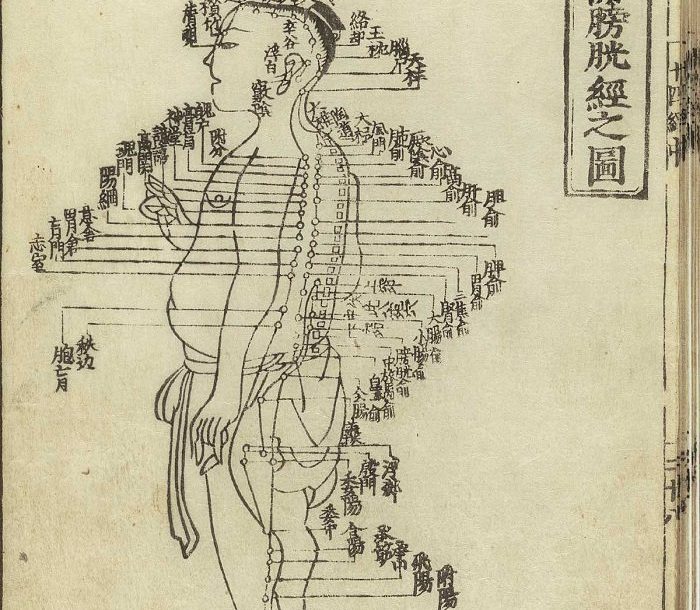 膀胱經之圖
十四經
睛明
攢竹
率谷
浮白
竅陰
絡却
玉枕
天柱
陶道
大杼
風門
肺俞
厥陰俞
心俞
膈俞
肝俞
膽俞
脾俞
胃俞
三焦俞
腎俞
大腸俞
小腸俞
膀胱俞
白環俞
附分
魄户
膏肓
神堂
譩譆
膈關
魂門
陽綱
意舍
胃倉
肓門
志室
秩边
胞肓
浮郄
殷門
委陽
委中
合陽
承筋
承山
飛陽
附陽